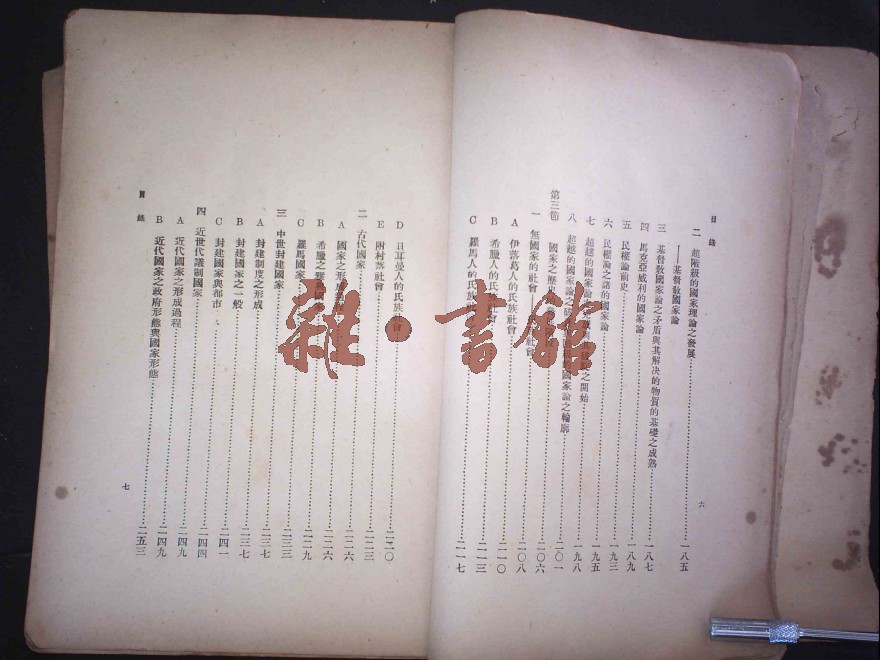 目錄
二 超階級的國家理論之發展 一八五
——基督敎國家論
三 基督敎國家論之矛盾與其解決的物質的基礎之成熟 一八七
四 馬克亞威利的國家論 一八九
五 民權論前史 一九三
六 民權論之諸的國家論 一九五
七 超越的國家論 之開始 一九八
八 超越的國家論之 國家論之輪廓 二〇一
第三節 國家之歷史
一 無國家的社會—— 社會 二〇六
A 伊落葛人的氏族社會 二〇八
B 希臘人的氏族社會 二一〇
C 羅馬人的氏族 二一三
二一七
六
D 日耳曼人的氏族社會 二二〇
E 兩村落社會
二 古代國家 二二三
A 國家之形成 二二六
B 希臘之 二二六
C 羅馬國家 二二九
三 中世封建國家 二三三
A 封建制度之形成 二三七
B 封建國家之一般 二三七
C 封建國家與都市 二四一
四 近世代議制國家 二四四
A 近代國家之形成過程 二四九
B 近代國家之政府形態與國家形態 二四九
二五三
目錄
七
雜·書館